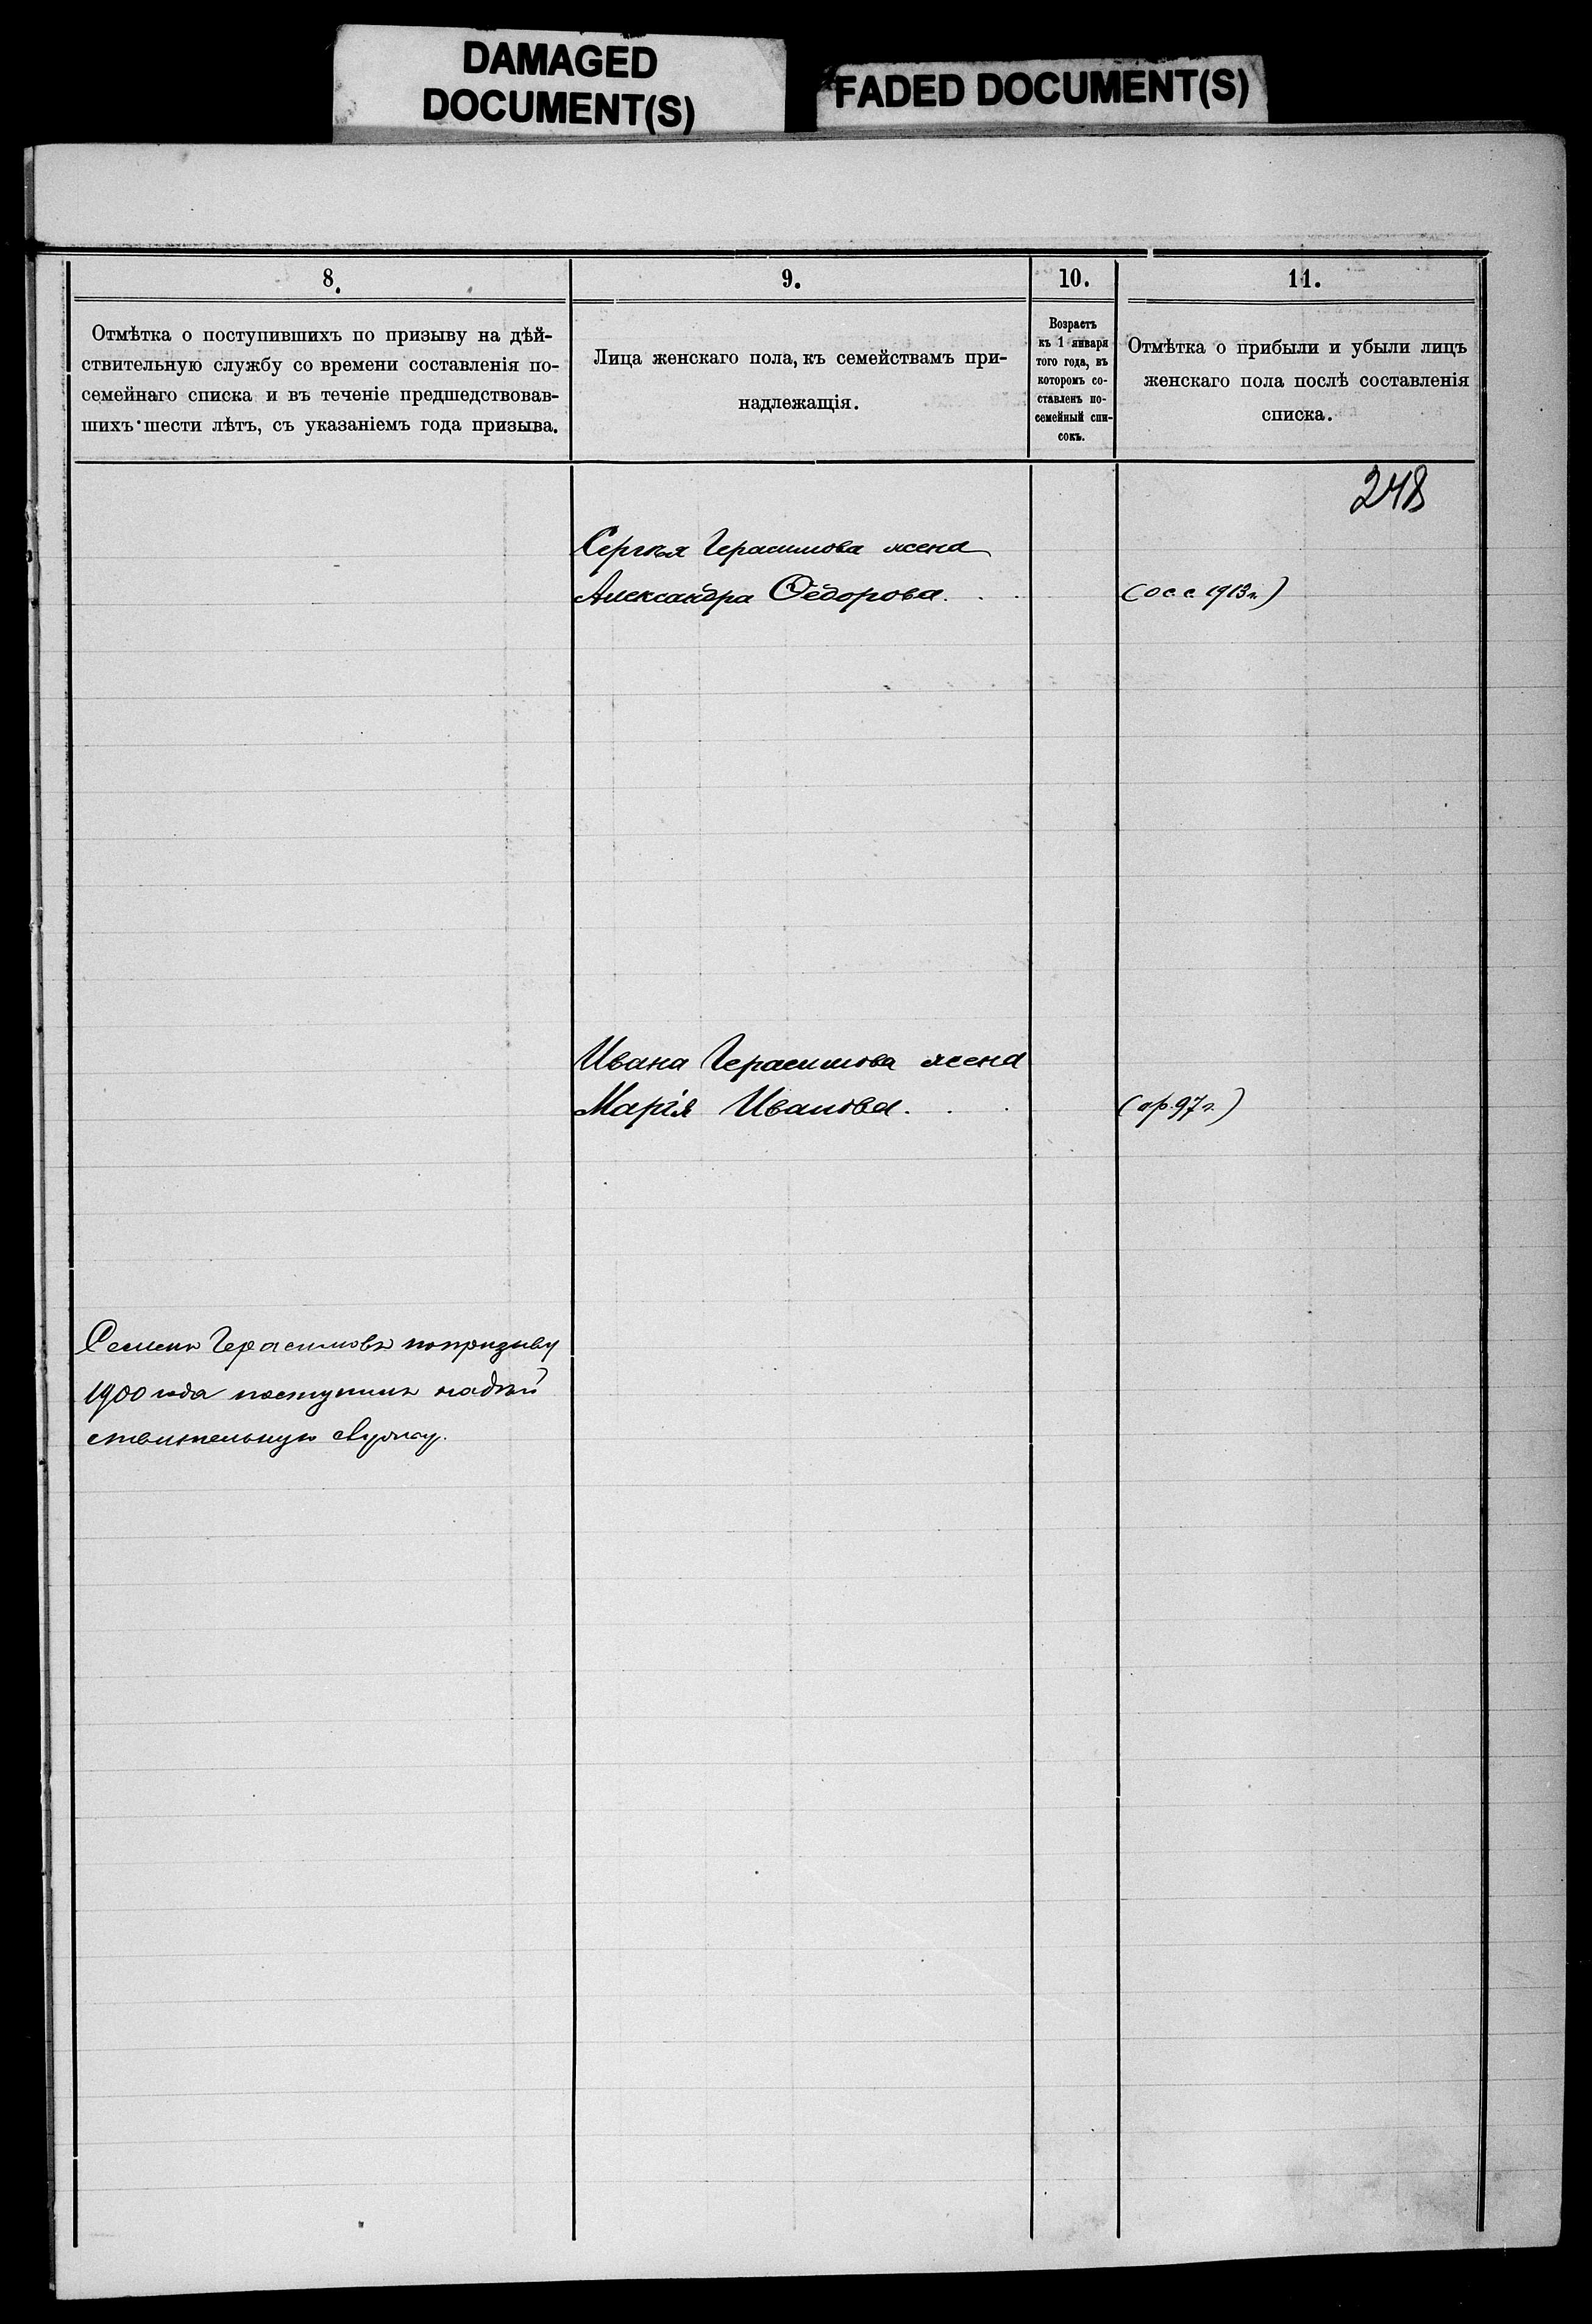 DAMAGED
DOCUMENT(S)
FADED DOCUMENT(S)
8.
Отмѣтка о поступившихъ по призыву на дѣй-
ствительную службу со времени составленія по-
семейнаго списка и въ теченіе предшедствовав-
шихъ шести лѣтъ, съ указаніемъ года призыва.
9.
Лица женскаго пола, къ семействамъ при-
надлежащія.
10.
Возрастъ
къ 1 января
того года, въ
которомъ со-
ставленъ по-
семейный спи-
сокъ.
11.
Отмѣтка о прибыли и убыли лицъ
женскаго пола послѣ составленія
списка.
248
Сергѣя Герасимова жена
Александра Ѳедорова. . .
(о с. с. 1913 г.)
Ивана Герасимова жена
Марія Иванова. . .
(бр. 97 г.)
Семенъ Герасимовъ по призыву
1900 года поступилъ на дѣй
ствительную службу.